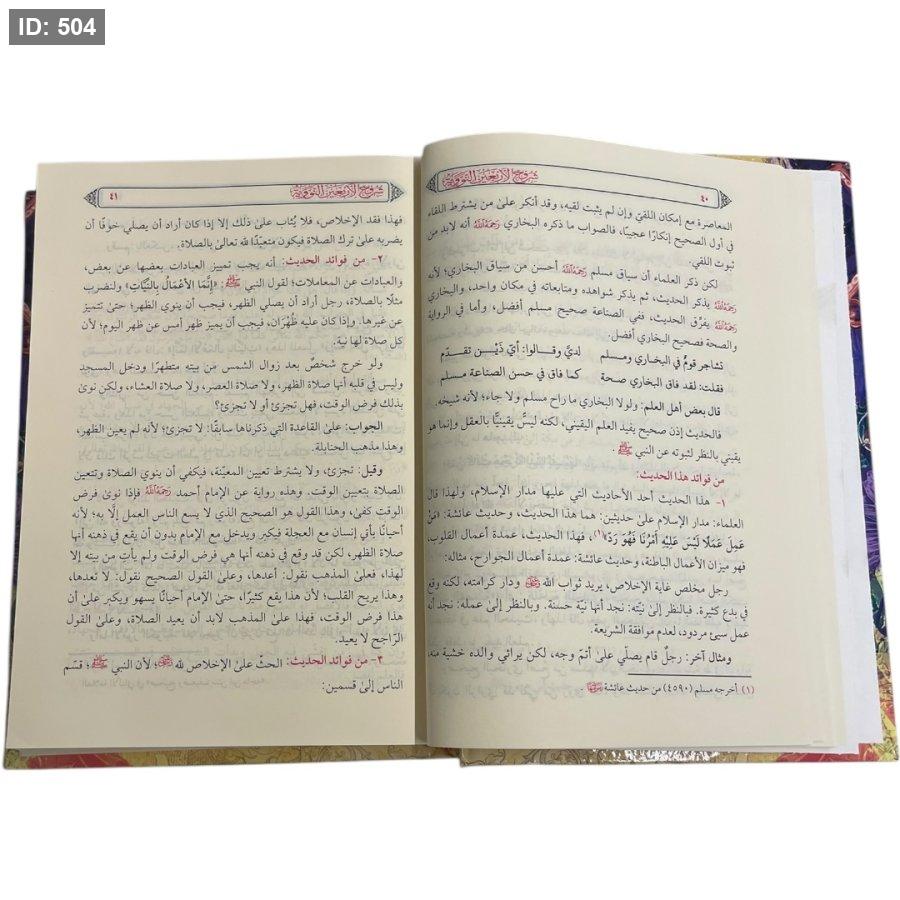 ID: 504
٤٠
شروح الأربعين النووية
المعاصرة مع إمكان اللقيّ وإن لم يثبت لقيه، وقد أنكر علىٰ من يشترط اللقاء
في أول الصحيح إنكارًا عجيبًا، فالصواب ما ذكره البخاري رَحِمَهُ اللَّهُ أنه لابد من
ثبوت اللقي.
لكن ذكر العلماء أن سياق مسلم رَحِمَهُ اللَّهُ أحسن من سياق البخاري؛ لأنه
رَحِمَهُ اللَّهُ يذكر الحديث، ثم يذكر شواهده ومتابعاته في مكان واحد، والبخاري
رَحِمَهُ اللَّهُ يفرِّق الحديث، ففي الصناعة صحيح مسلم أفضل، وأما في الرواية
والصحة فصحيح البخاري أفضل.
تشاجر قومٌ في البخاري ومسلم لديَّ وقالوا: أيّ ذَيْن تقدّم
فقلت: لقد فاق البخاري صحة كما فاق في حسن الصناعة مسلم
قال بعض أهل العلم: ولولا البخاري ما راح مسلم ولا جاء؛ لأنه شيخه.
فالحديث إذن صحيح يفيد العلم اليقيني، لكنه ليسَ يقينيًّا بالعقل وإنما هو
يقيني بالنظر لثبوته عن النبي ﷺ.
من فوائد هذا الحديث:
١- هذا الحديث أحد الأحاديث التي عليها مدار الإسلام، ولهذا قال
العلماء: مدار الإسلام علىٰ حديثين: هما هذا الحديث، وحديث عائشة: «مَنْ
عَمِلَ عَمَلًا لَيْسَ عَلَيْهِ أَمْرُنَا فَهُوَ رَدٌّ»(١)، فهذا الحديث، عمدة أعمال القلوب،
فهو ميزان الأعمال الباطنة، وحديث عائشة: عمدة أعمال الجوارح، مثاله:
رجل مخلص غاية الإخلاص، يريد ثواب الله ودار كرامته، لكنه وقع
في بدع كثيرة. فبالنظر إلىٰ نيّته: نجد أنها نيّة حسنة. وبالنظر إلىٰ عمله: نجد أنه
عمل سيئ مردود، لعدم موافقة الشريعة.
ومثال آخر: رجلٌ قام يصلّي علىٰ أتمّ وجه، لكن يرائي والده خشية منه،
(١) أخرجه مسلم (٤٥٩٠) من حديث عائشة
شروح الأربعين النووية
٤١
فهذا فقد الإخلاص، فلا يُثاب علىٰ ذلك إلا إذا كان أراد أن يصلي خوفًا أن
يضربه علىٰ ترك الصلاة فيكون متعبدًا لله تعالىٰ بالصلاة.
٢- من فوائد الحديث: أنه يجب تمييز العبادات بعضها عن بعض،
والعبادات عن المعاملات؛ لقول النبي ﷺ: «إِنَّمَا الأَعْمَالُ بِالنِّيَّاتِ» ولنضرب
مثلًا بالصلاة، رجل أراد أن يصلي الظهر، فيجب أن ينوي الظهر؛ حتىٰ تتميز
عن غيرها. وإذا كان عليه ظُهْرَان، فيجب أن يميز ظهر أمس عن ظهر اليوم؛ لأن
كل صلاة لها نية.
ولو خرج شخصٌ بعد زوال الشمس من بيته متطهرًا ودخل المسجد
وليس في قلبه أنها صلاة الظهر، ولا صلاة العصر، ولا صلاة العشاء، ولكن نوىٰ
بذلك فرض الوقت، فهل تجزئ أو لا تجزئ؟
الجواب: علىٰ القاعدة التي ذكرناها سابقًا: لا تجزئ؛ لأنه لم يعين الظهر،
وهذا مذهب الحنابلة.
وقيل: تجزئ، ولا يشترط تعيين المعيّنة، فيكفي أن ينوي الصلاة وتتعين
الصلاة بتعيين الوقت. وهذه رواية عن الإمام أحمد رَحِمَهُ اللَّهُ فإذا نوىٰ فرض
الوقت كفىٰ، وهذا القول هو الصحيح الذي لا يسع الناس العمل إلَّا به؛ لأنه
أحيانًا يأتي إنسان مع العجلة فيكبر ويدخل مع الإمام بدون أن يقع في ذهنه أنها
صلاة الظهر، لكن قد وقع في ذهنه أنها هي فرض الوقت ولم يأتِ من بيته إلا
لهذا، فعلىٰ المذهب نقول: أعدها، وعلىٰ القول الصحيح نقول: لا تعدها،
وهذا يريح القلب؛ لأن هذا يقع كثيرًا، حتىٰ الإمام أحيانًا يسهو ويكبر علىٰ أن
هذا فرض الوقت، فهذا علىٰ المذهب لابد أن يعيد الصلاة، وعلىٰ القول
الرّاجح لا يعيد.
٣- من فوائد الحديث: الحثّ علىٰ الإخلاص لله؛ لأن النبي ﷺ قسّم
الناس إلىٰ قسمين: